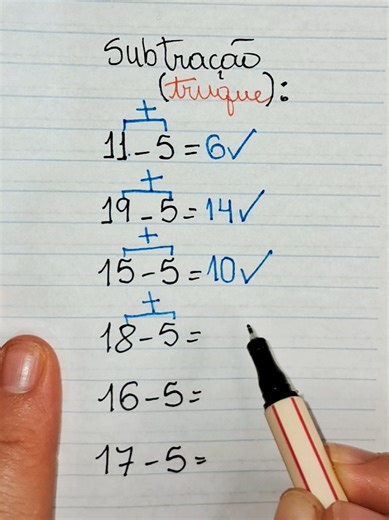 Subtração
(truque):
+
11 - 5 = 6✓
+
19 - 5 = 14✓
+
15 - 5 = 10✓
+
18 - 5 =
16 - 5 =
17 - 5 =